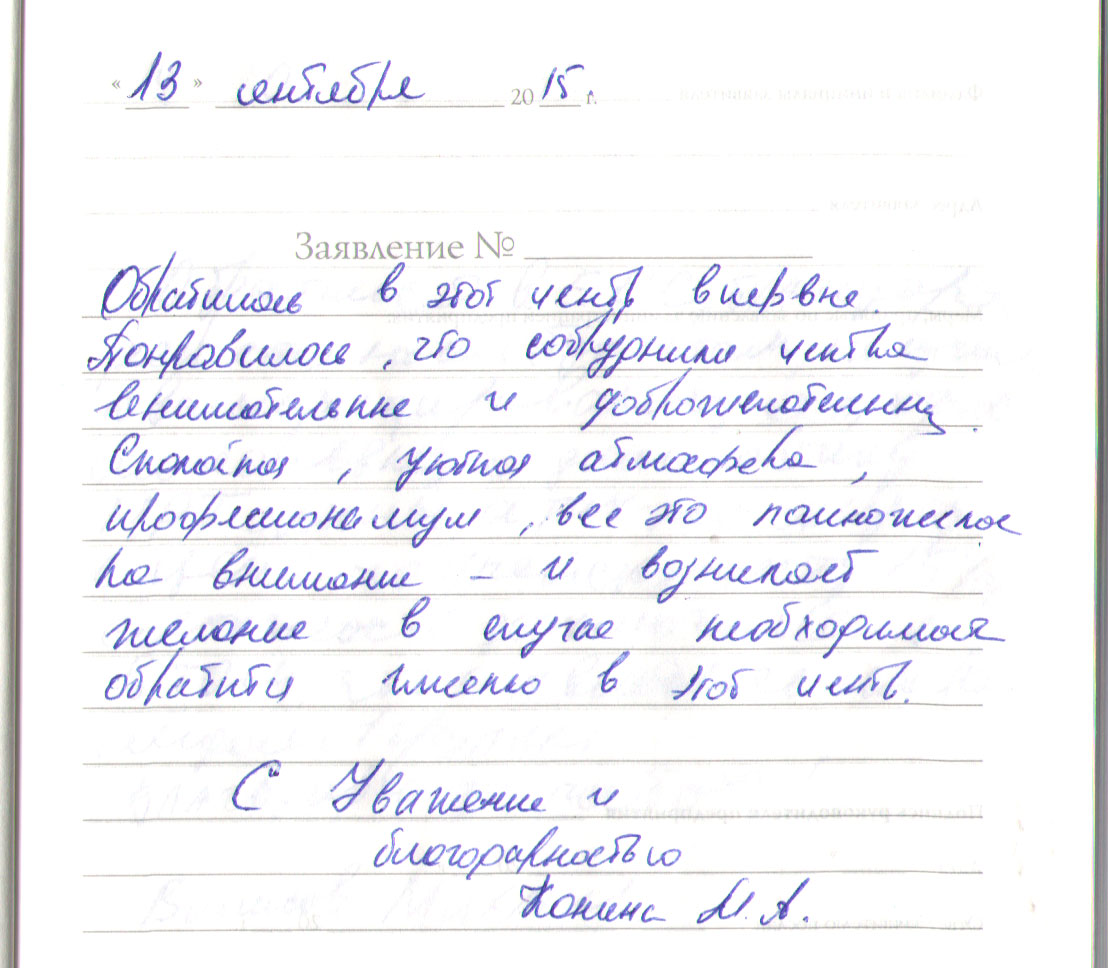 « 13 » сентября 2015 г.
Заявление №
Обратилась в этот центр впервые.
Понравилось, что сотрудники центра
внимательные и доброжелательны.
Спокойная, уютная атмосфера,
профессионализм, все это
на внимание – и возникает
желание в случае необходимости
обратиться именно в этот центр.
С Уважение и
благодарностью
Конина М.А.